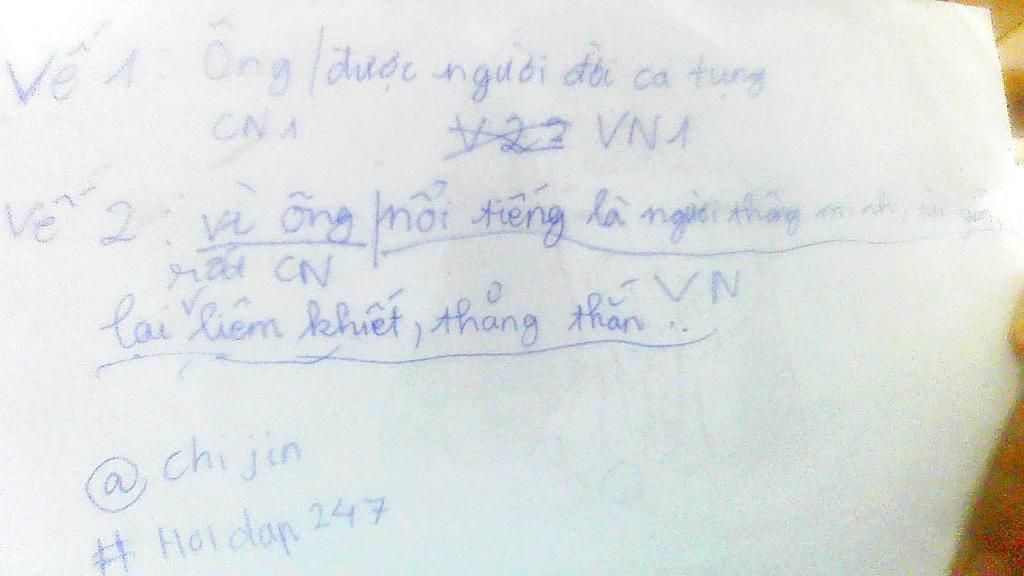 Vế 1: Ông / được người đời ca tụng
CN1 V22 VN1
Vế 2: vì ông / nổi tiếng là người thông minh, tài giỏi,
rất CN VN
lại liêm khiết, thẳng thắn..
@ Chi jin
# Hoidap247